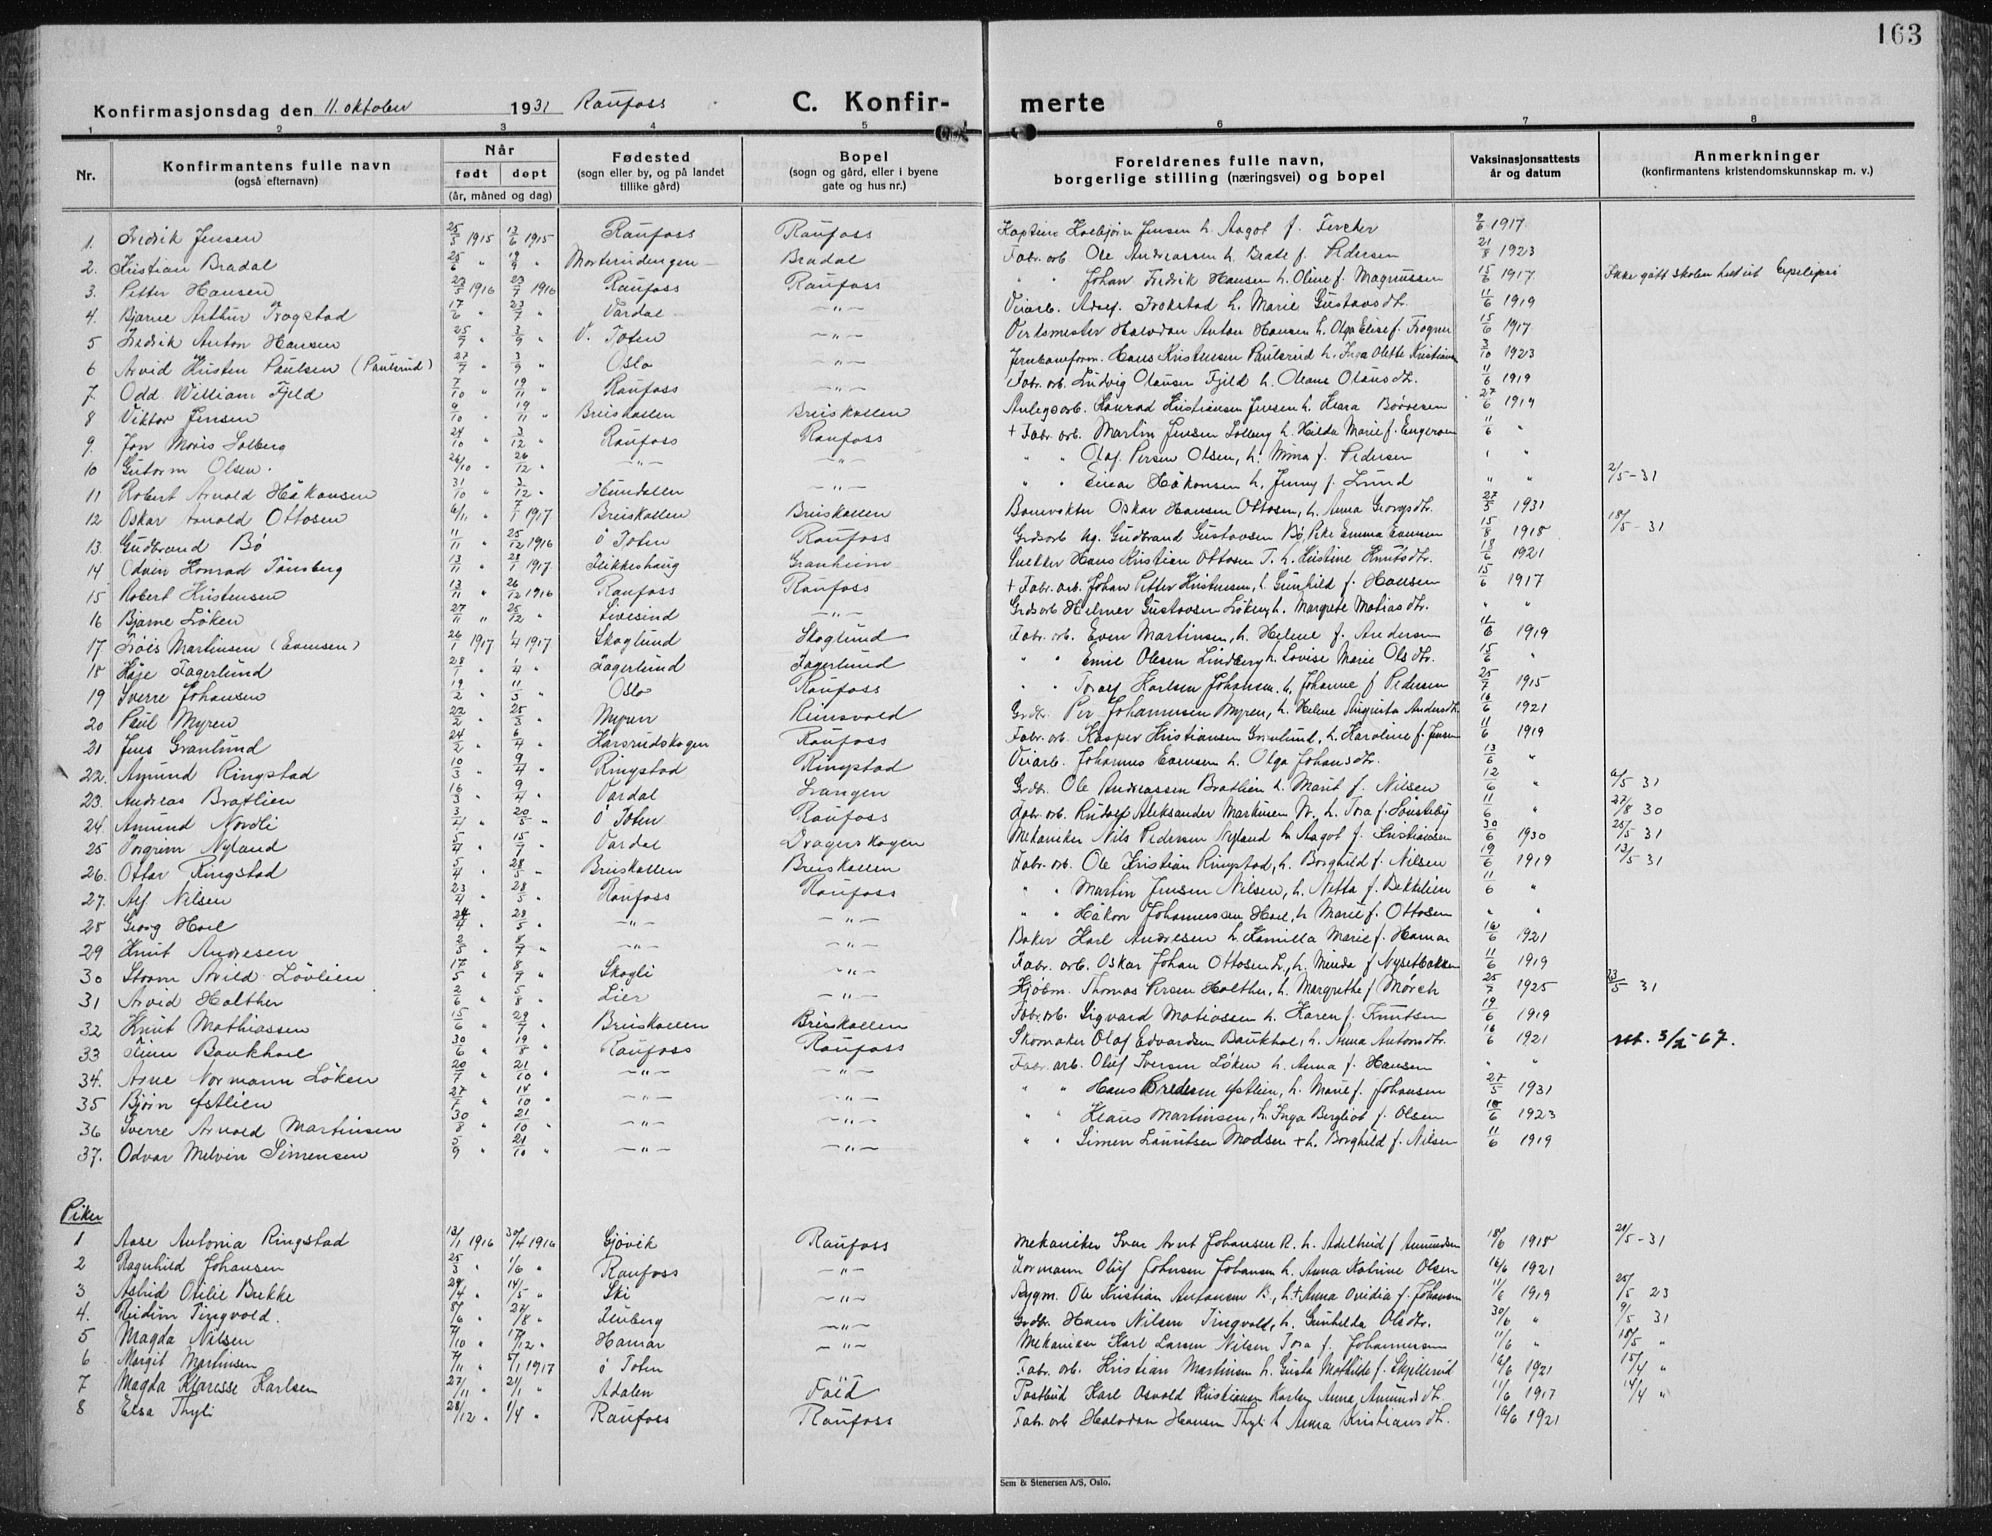 163
Konfirmasjonsdag den 11. oktober 1931 Raufoss C. Konfir- merte
1 2 3 4 5 6 7 8
Nr. Konfirmantens fulle navn (også efternavn) Når født døpt (år, måned og dag) Fødested (sogn eller by, og på landet tillike gård) Bopel (sogn og gård, eller i byene gate og hus nr.) Foreldrenes fulle navn, borgerlige stilling (næringsvei) og bopel Vaksinasjonsattests år og datum Anmerkninger (konfirmantens kristendomskunnskap m. v.)
1. Fredrik Jensen 25/5 1915 13/6 1915 Raufoss Raufoss Jensen h. Aagot f. 9/6 1917
2. Kristian Bradal 25/6 " 19/9 " Bradal Fabr. arb. Ole Andreassen h. Beate f. Pedersen 21/8 1923
3. Petter Hansen 23/5 1916 23/7 1916 Raufoss Raufoss " " Johan Fredrik Hansen h. Oline f. Magnussen 15/6 1917 Ikke gått skolen helt ut
4. Bjarne Arthur Trogstad 17/6 " 23/7 " Vardal —"— Veiarb. Trokstad h. Marie Gustavsdtr. 11/6 1919
5 Fredrik Anton Hansen 25/7 " 3/9 " V. Toten —"— Verksmester Halvdan Anton Hansen h. Olga Elise f. Trogner 15/6 1917
6 Arvid Kristen Paulsen (Paulsrud) 27/7 " 3/9 " Oslo —"— Hans Kristensen Paulsrud h. Inga Olette 3/10 1923
7. Odd William Fjeld 7/10 " 19/11 " Raufoss —"— Fabr. arb. Ludvig Olausen Fjeld h. Oleane Olausdtr. 11/6 1919
8 Viktor Jensen 9/10 " 19/11 " Breiskallen Breiskallen Anlegsarb. Konrad Kristiansen Jensen h. Klara Børresen 27/6 1919
9. Jon Moris Solberg 24/10 " 3/12 " Raufoss Raufoss + Fabr. arb. Martin Jensen Solberg h. Hilda Marie f. 11/6 "
10 Gutorm Olsen. 26/10 " 26/12 " —"— —"— " " Olaf Persen Olsen, h. Mina f. Pedersen " "
11 Robert Arnold Håkonsen 31/10 " 3/12 " Hundallen —"— " " Einar Håkonsen h. Jenny f. Lund " " 2/5-31
12 Oskar Arnold Ottosen 6/11 " 7/1 1917 Breiskallen Breiskallen Banevokter Oskar Hansen Ottosen, h. Anna Georgsdtr. 27/5 1931
13. Gudbrand Bø 11/11 " 25/12 1916 Ø Toten Raufoss Grdsarb. Ug. Gudbrand Gustavsen Bø, Pke Emma Evensen 15/8 1918 18/5-31
14 Odven Konrad Tønsberg 13/11 " 28/1 1917 Granheim Hans Kristian Ottosen T. h. Kristine Knutsdtr. 18/6 1921
15 Robert Kristensen 13/11 " 26/12 1916 Raufoss Raufoss + Fabr. arb. Johan Petter Kristensen, h. Gunhild f. Hansen 15/6 1917
16 Bjarne Løken 27/11 " 25/12 " —"— Grdsarb Helmer Gustavsen Løken h. Margrete Matiasdtr. " "
17 Martinsen (Evensen) 26/1 1917 1/4 1917 Skoglund Skoglund Fabr. arb. Even Martinsen, h. Helene f. Andersen 11/6 1919
18 Fagerlund 28/1 " 1/4 " Fagerlund Fagerlund " " Emil Olesen Lindberg h. Lovise Marie Olsdtr. 15/6 "
19 Sverre Johansen 19/2 " 11/3 " Oslo Raufoss " " Karlsen Johansen h. Johanne f Pedersen 25/7 1915
20 Paul Myren 22/2 " 25/3 " Myren Reinsvold Grdbr. Per Johannesen Myren, h. Helene Augusta Andersdtr. 16/6 1921
21 Jens Granlund 24/2 " 6/4 " Harsrudskogen Raufoss Fabr. arb. Kasper Kristiansen Granlund, h. Karoline f. Jensen 11/6 1919
22. Amund Ringstad 10/3 " 9/4 " Ringstad Ringstad Veiarb. Johannes Evensen h. Olga Johansdtr. 13/6 "
23. Andreas Bratlien 16/3 " 9/4 " Vardal Grdbr. Ole Andreassen Bratlien h. Marit f. Nilsen 12/6 " 6/5 31
24. Amund Nordli 3/4 " 20/5 " Ø Toten Raufoss Fabr. arb. Rudolf Aleksander Markusen N. h. Tora f. 11/6 " 27/8 30
25 Nyland 5/4 " 15/7 " Vardal Dragerskogen Mekaniker Nils Pedersen Nyland h. Aagot f. Kristiansen 30/6 1930 25/5 31
26. Ottar Ringstad 5/4 " 28/5 " Breiskallen Breiskallen Fabr. arb. Ole Kristian Ringstad, h. Borghild f. Nilsen 19/6 1919 13/5 31
27. Alf Nilsen 23/4 " 28/5 " Raufoss Raufoss " " Martin Jensen Nilsen, h. Netta f. 11/6 "
28 Georg Hoel 24/4 " 28/5 " —"— —"— " " Håkon Johannessen Hoel, h. Marie f. Ottosen " "
29 Knut Andresen 2/5 " 8/7 " —"— —"— Baker Karl Andresen h. Kamilla Marie f. Hamar 16/6 1921
30 Løvlien 17/5 " 8/7 " Skogli —"— Fabr. arb. Oskar Johan Ottosen L., h. Minda f Nysetbakken 11/6 1919
31 Arvid Holther 2/6 " 5/8 " Lier —"— Kjøbm. Thomas Persen Holther, h. Margrethe f Mørch 25/7 1925 23/5 31
32 Knut Mathiassen 15/6 " 29/7 " Breiskallen Breiskallen Fabr. arb. Sigvard Matiassen h. Karen f. Knutsen 19/6 1919
33 Baukhol 30/6 " 19/8 " Raufoss Raufoss Skomaker Olaf Edvardsen Baukhol, h. Anna Antonsdtr. 16/6 1921
34. Arne Normann Løken 20/7 " 21/10 " —"— —"— Fabr. arb. Oluf Iversen Løken h. Anna f. Hansen " "
35 Bjørn Østlien 27/7 " 14/10 " —"— —"— " " Hans Bredesen Østlien, h. Marie f. Johansen 27/5 1931
36 Sverre Arnold Martinsen 30/8 " 21/10 " —"— —"— " " Klaus Martinsen, h. Inga Bergliot f. Olsen 18/6 1923
37. Odvar Melvin Simensen 5/9 " 21/10 " —"— —"— " " Simen Lauritsen Madsen + h. Borghild f. Nilsen 11/6 1919
Piker
1 Aase Antonia Ringstad 13/1 1916 30/4 1916 Gjøvik Raufoss Mekaniker Ivar Arnt Johansen R. h. Adelheid f Amundsen 18/6 1918 29/5-31
2 Ragnhild Johansen 25/3 " 1/6 " Raufoss —"— Formann Oluf Johnsen Johansen h. Anna Katrine Olsen 16/6 1921
3 Astrid Otilie Bekke 29/4 " 14/5 " Ski —"— Bygm. Ole Kristian Antonsen B., h+ Anna Ovidia f. Johansen 11/6 1919 25/5 23
4. Reidun Tingvold. 8/6 " 27/8 " Furberg —"— Grdbr. Hans Nilsen Tingvold, h. Gunhilda Olsdtr. 30/6 " 9/5 31
5 Magda Nilsen 4/10 " 17/12 " Hamar —"— Mekaniker Karl Larsen Nilsen Tora f. Johannesen 11/6 " 18/5 "
6 Margit Martinsen 4/11 " 5/1 1917 Ø Toten Fabr. arb. Kristian Martinsen h. Gusta Mathilde f. Skjellerud 16/6 1921 15/4 "
7 Magda Klaresse Karlsen 27/11 " 21/1 " Ådalen Føld Postbud Karl Osvald Kristiansen Karlsen Anna Amundsdtr. 11/6 1917 14/4 "
8 Elsa Thyli 28/12 " 1/4 " Raufoss Raufoss Fabr. arb Halvdan Hansen Thyli h Anna Kristiansdtr. 16/6 1921
Sem & Stenersen A/S, Oslo.